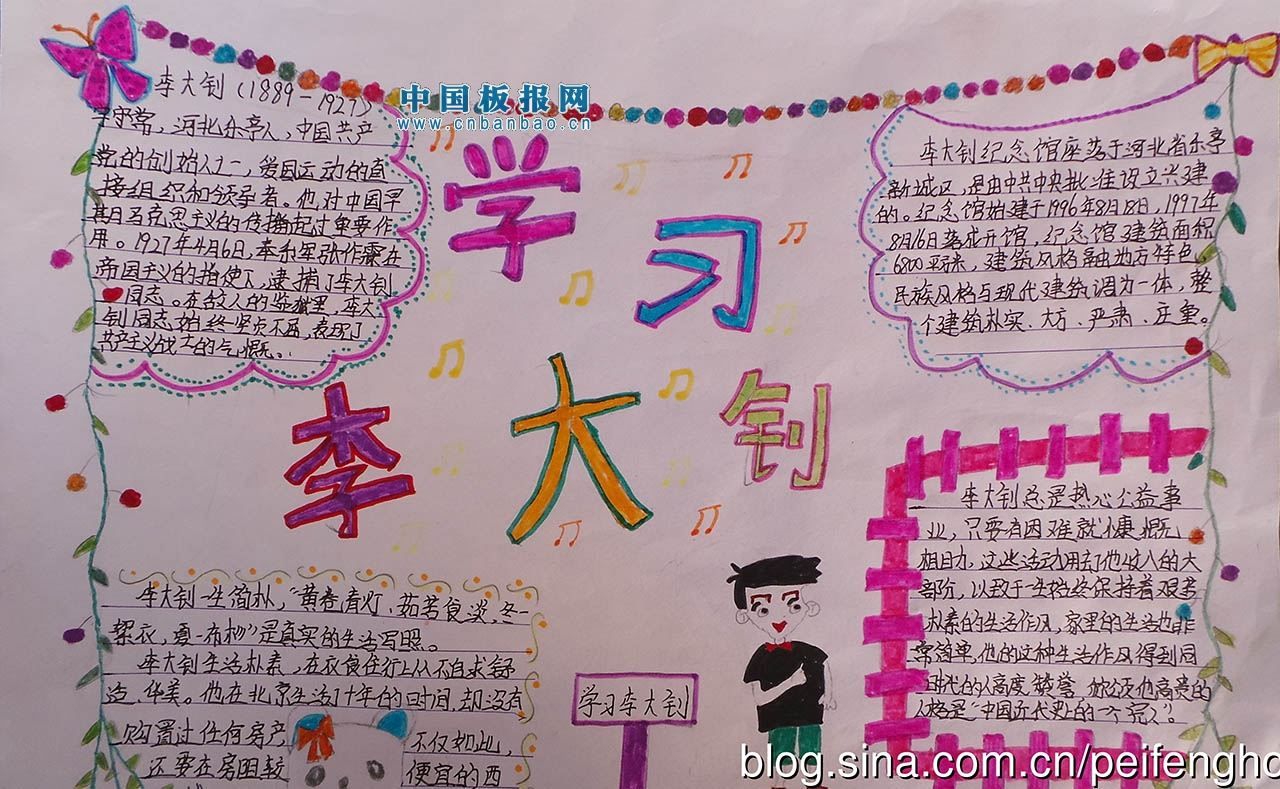 中国板报网
www.cnbanbao.cn
李大钊(1889-1927)
字守常,河北乐亭人,中国共产
党的创始人之一,爱国运动的直
接组织和领导者。他对中国早
期马克思主义的传播起过重要作
用。1927年4月6日,奉系军张作霖在
帝国主义的指使下,逮捕了李大钊
同志。在敌人的监狱里,李大
钊同志始终坚贞不屈,表现了
共产主义战士的气概。
学习
李大钊
李大钊纪念馆座落于河北省乐亭
新城区,是由中共中央批准设立兴建
的。纪念馆始建于1996年8月18日,1997年
8月16日落成开馆,纪念馆建筑面积
6800平方米,建筑风格融地方特色
民族风格与现代建筑调为一体,整
个建筑朴实、大方、严肃、庄重。
李大钊总是热心公益事
业,只要有困难就慷慨
相助,这些活动用去他收入的大
部份,以致于一生始终保持着艰苦
朴素的生活作风,家里的生活也非
常简单,他的这种生活作风得到同
时代的人高度赞誉,称颂他高贵的
人格是"中国近代史上的一个完人"。
李大钊一生简朴,"黄卷青灯,茹苦食淡,冬一
絮衣,夏一布衫"是真实的生活写照。
李大钊生活朴素,在衣食住行上从不自求舒
适、华美。他在北京生活1十年的时间,却没有
购置过任何房产 不仅如此,
还要在房租较 便宜的西
学习李大钊
blog.sina.com.cn/peifengho